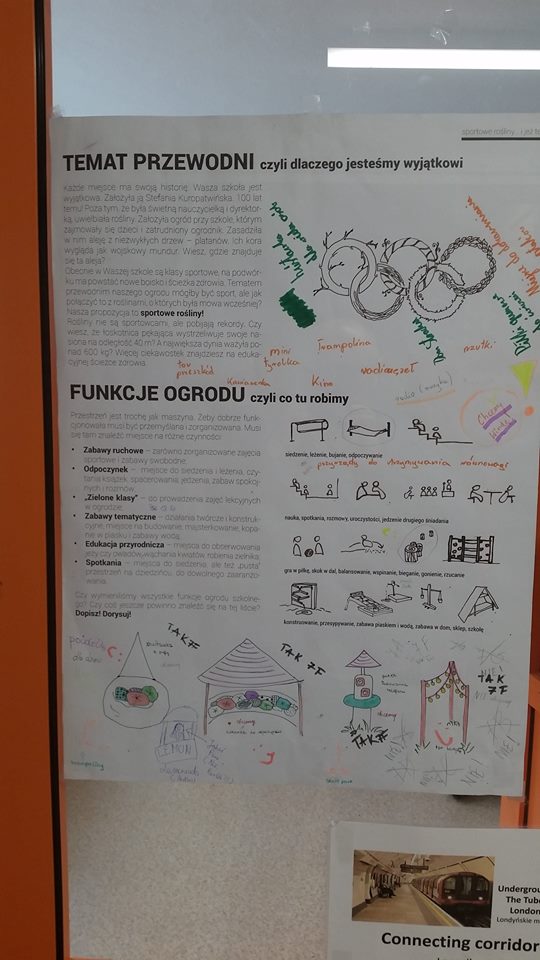 sportowe rośliny... i jest te
TEMAT PRZEWODNI czyli dlaczego jesteśmy wyjątkowi
Każde miejsce ma swoją historię. Wasza szkoła jest
wyjątkowa. Założyła ją Stefania Kuropatwińska. 100 lat
temu! Poza tym, że była świetną nauczycielką i dyrektor-
ką, uwielbiała rośliny. Założyła ogród przy szkole, którym
zajmowały się dzieci i zatrudniony ogrodnik. Zasadziła
w nim aleję z niezwykłych drzew – platanów. Ich kora
wygląda jak wojskowy mundur. Wiesz, gdzie znajduje
się ta aleja?
Obecnie w Waszej szkole są klasy sportowe, na podwór-
ku ma powstać nowe boisko i ścieżka zdrowia. Tematem
przewodnim naszego ogrodu mógłby być sport, ale jak
połączyć to z roślinami, o których była mowa wcześniej?
Nasza propozycja to sportowe rośliny!
Rośliny nie są sportowcami, ale pobijają rekordy. Czy
wiesz, że łoskotnica pękająca wystrzeliwuje swoje na-
siona na odległość 40 m? A największa dynia ważyła po-
nad 600 kg? Więcej ciekawostek znajdziesz na eduka-
cyjnej ścieżce zdrowia.
Huśtawka
dla
osób
mini
tyrolka
Trampolina
tor
przeszkód
Kawiarenka
Kino
rzutki
radio (muzyka)
Chcemy
FUNKCJE OGRODU czyli co tu robimy
Przestrzeń jest trochę jak maszyna. Żeby dobrze funk-
cjonowała musi być przemyślana i zorganizowana. Musi
się tam znaleźć miejsce na różne czynności:
• Zabawy ruchowe – zarówno zorganizowane zajęcia
sportowe i zabawy swobodne,
• Odpoczynek – miejsce do siedzenia i leżenia, czy-
tania książek, spacerowania, jedzenia, zabaw spokoj-
nych i rozmów.
• „Zielone klasy” – do prowadzenia zajęć lekcyjnych
w ogrodzie,
• Zabawy tematyczne – działania twórcze i konstruk-
cyjne, miejsce na budowanie, majsterkowanie, kopa-
nie w piasku i zabawy wodą,
• Edukacja przyrodnicza – miejsca do obserwowania
jeży czy owadów, wąchania kwiatów, robienia zielnika,
• Spotkania – miejsce do siedzenia, ale też „pusta”
przestrzeń na dziedzińcu, do dowolnego zaaranżo-
wania.
Czy wymieniliśmy wszystkie funkcje ogrodu szkolne-
go? Czy coś jeszcze powinno znaleźć się na tej liście?
Dopisz! Dorysuj!
siedzenie, leżenie, bujanie, odpoczywanie
przyrządy do utrzymywania równowagi
nauka, spotkania, rozmowy, uroczystości, jedzenie drugiego śniadania
gra w piłkę, skok w dal, balansowanie, wspinanie, bieganie, gonienie, rzucanie
konstruowanie, przesypywanie, zabawa piaskiem i wodą, zabawa w dom, sklep, szkołę
TAK 7F
TAK 7F
TAK 7F
TAK
7F
NIE!
NIE!
NIE!
LEMON
trampoliny
skate park
Undergroun
The Tube
London
Londyńskie m
Connecting corridor